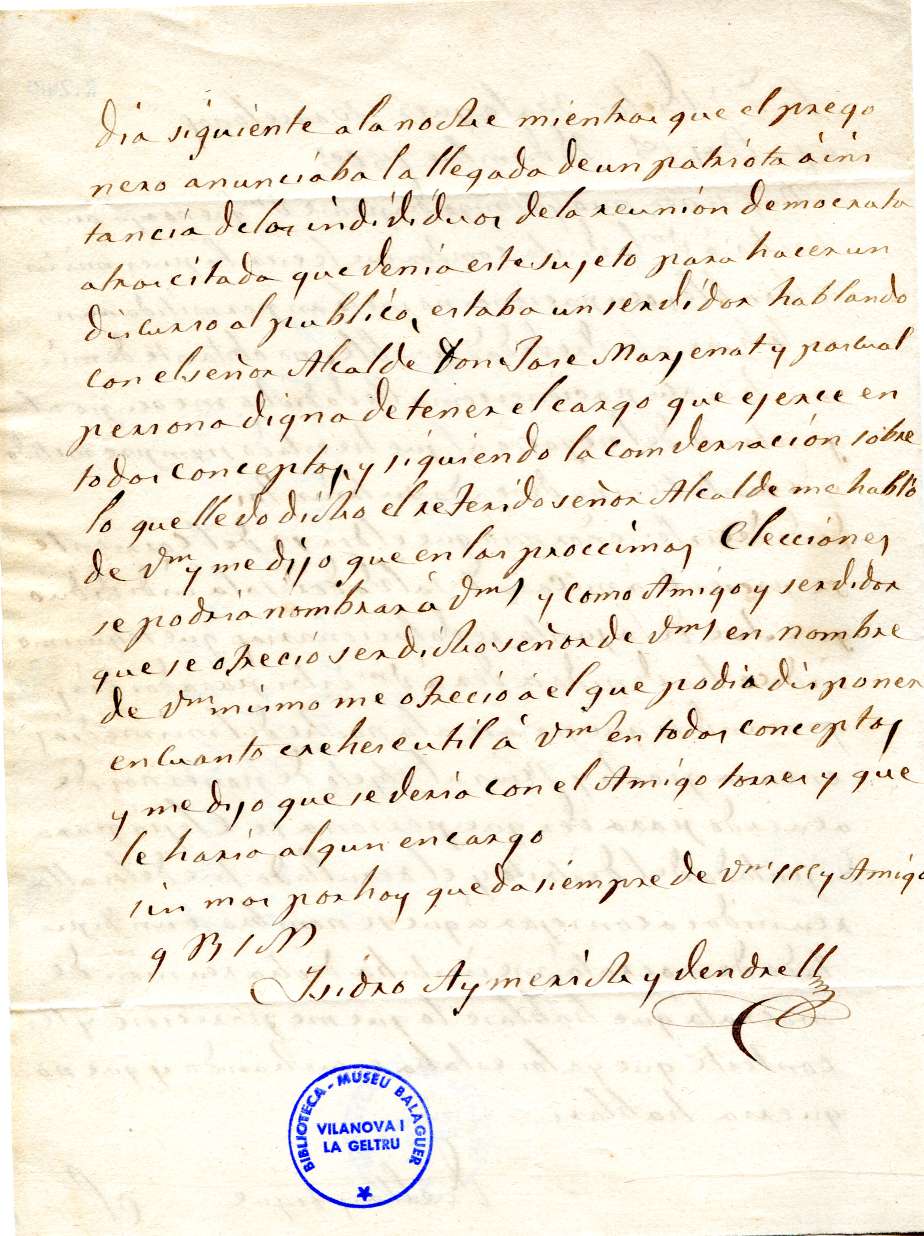 dia siguiente a la noche mientras que el prego
nero anunciaba la llegada de un patriota á ins
tancia de los indibiduos de la reunión democrata
atras citada que venia este sujeto para hacer un
discurso al publico, estaba un servidor hablando
con el señor Alcalde Don Jose Marjenat y pascual
persona digna de tener el cargo que ejerce en
todos conceptos, y siguiendo la comversación sobre
lo que llevo dicho el referido señor Alcalde me habló
de Vm y me dijo que en las proccimas Elecciónes
se podria nombrar á Vms y como Amigo y servidor
que se ofreció ser dicho señor de Vms en nombre
de Vm mismo me ofreció á el que podia disponer
en cuanto crehese util á Vms en todos conceptos
y me dijo que se veria con el Amigo torres y que
le haria algun encargo
sin mas por hoy queda siempre de Vms SSS y Amigo
q B S M
Isidro Aymerich y Vendrell
BIBLIOTECA - MUSEU BALAGUER
VILANOVA I
LA GELTRU